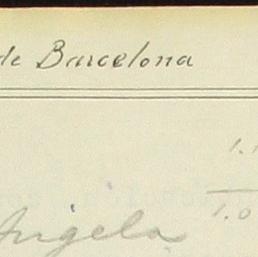 de Barcelona
1.1
Angela
1.0